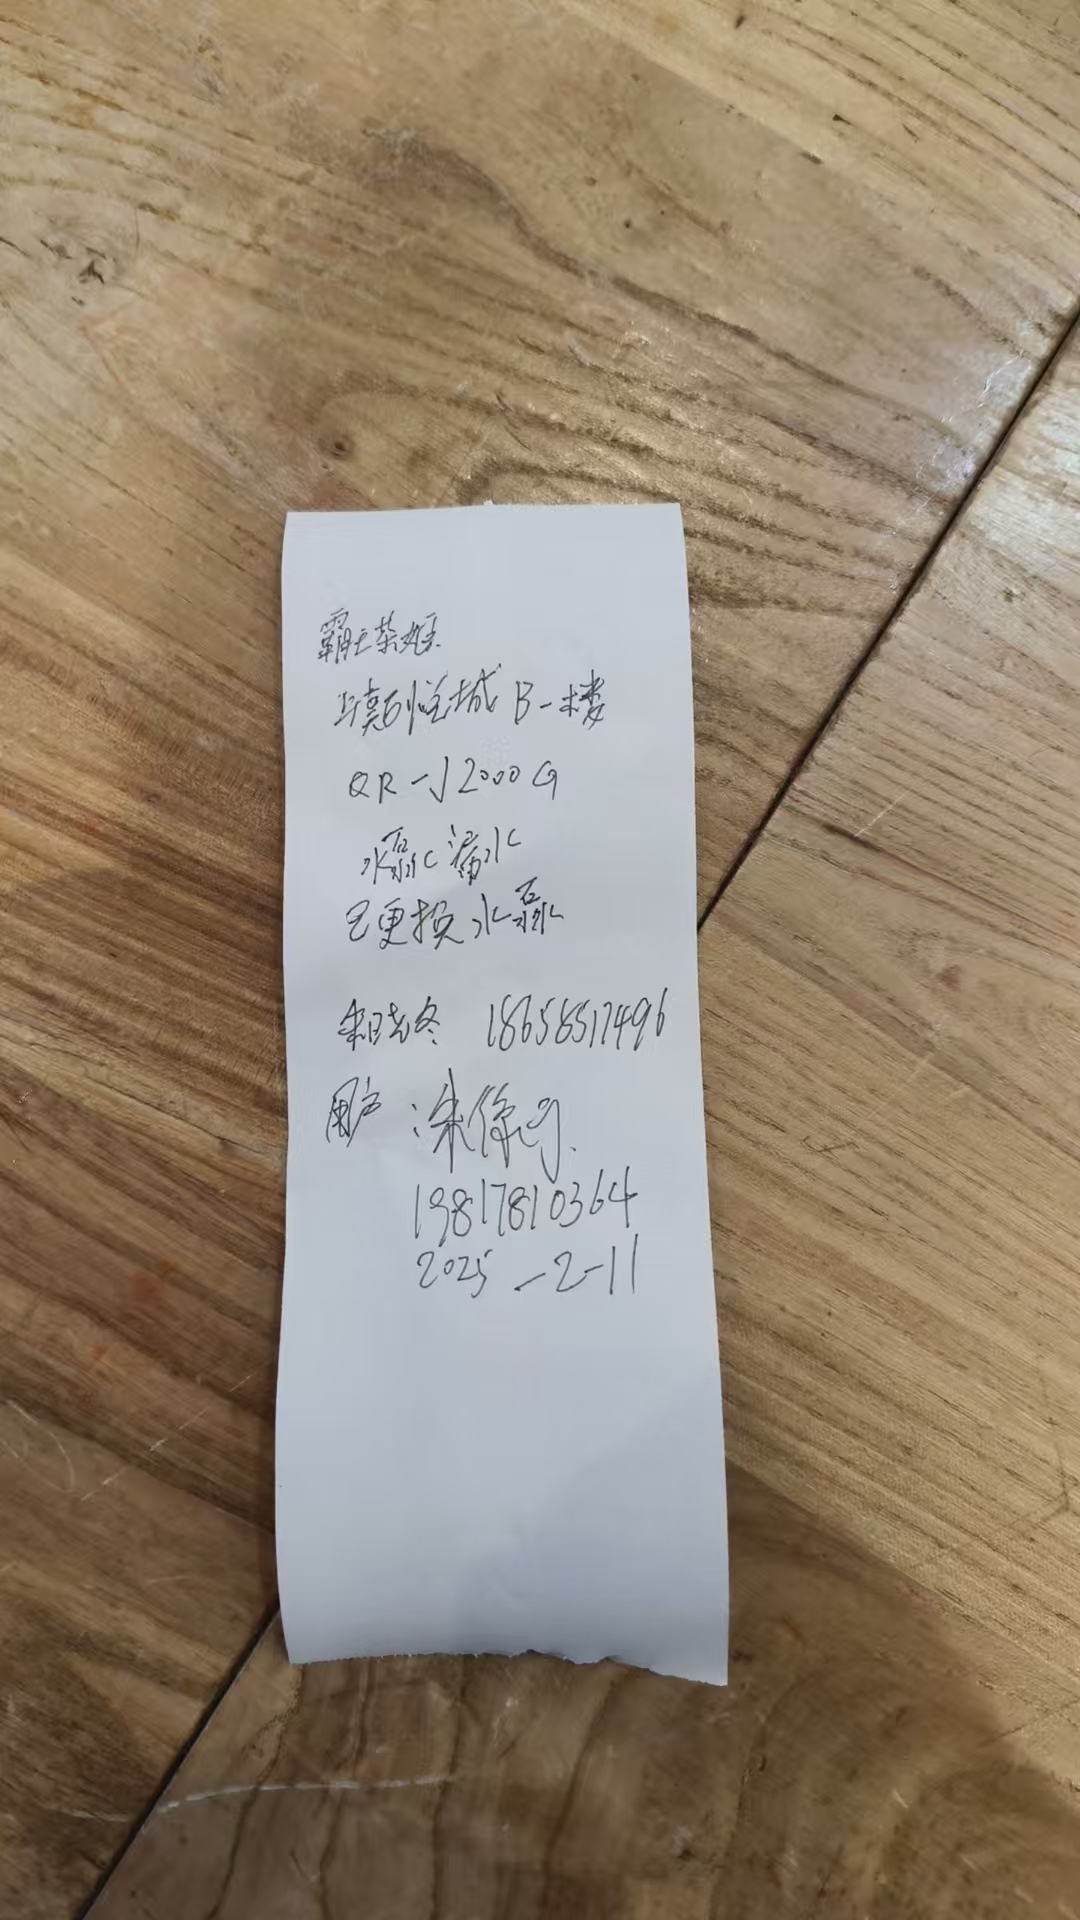 霸王茶姬
上颍悦城 B一楼
QR-J2000G
水泵漏水
已更换水泵
18658517496
用户:朱
19817810364
2025-2-11